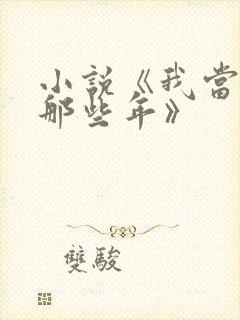 小說《我當
那些年》
雙駿